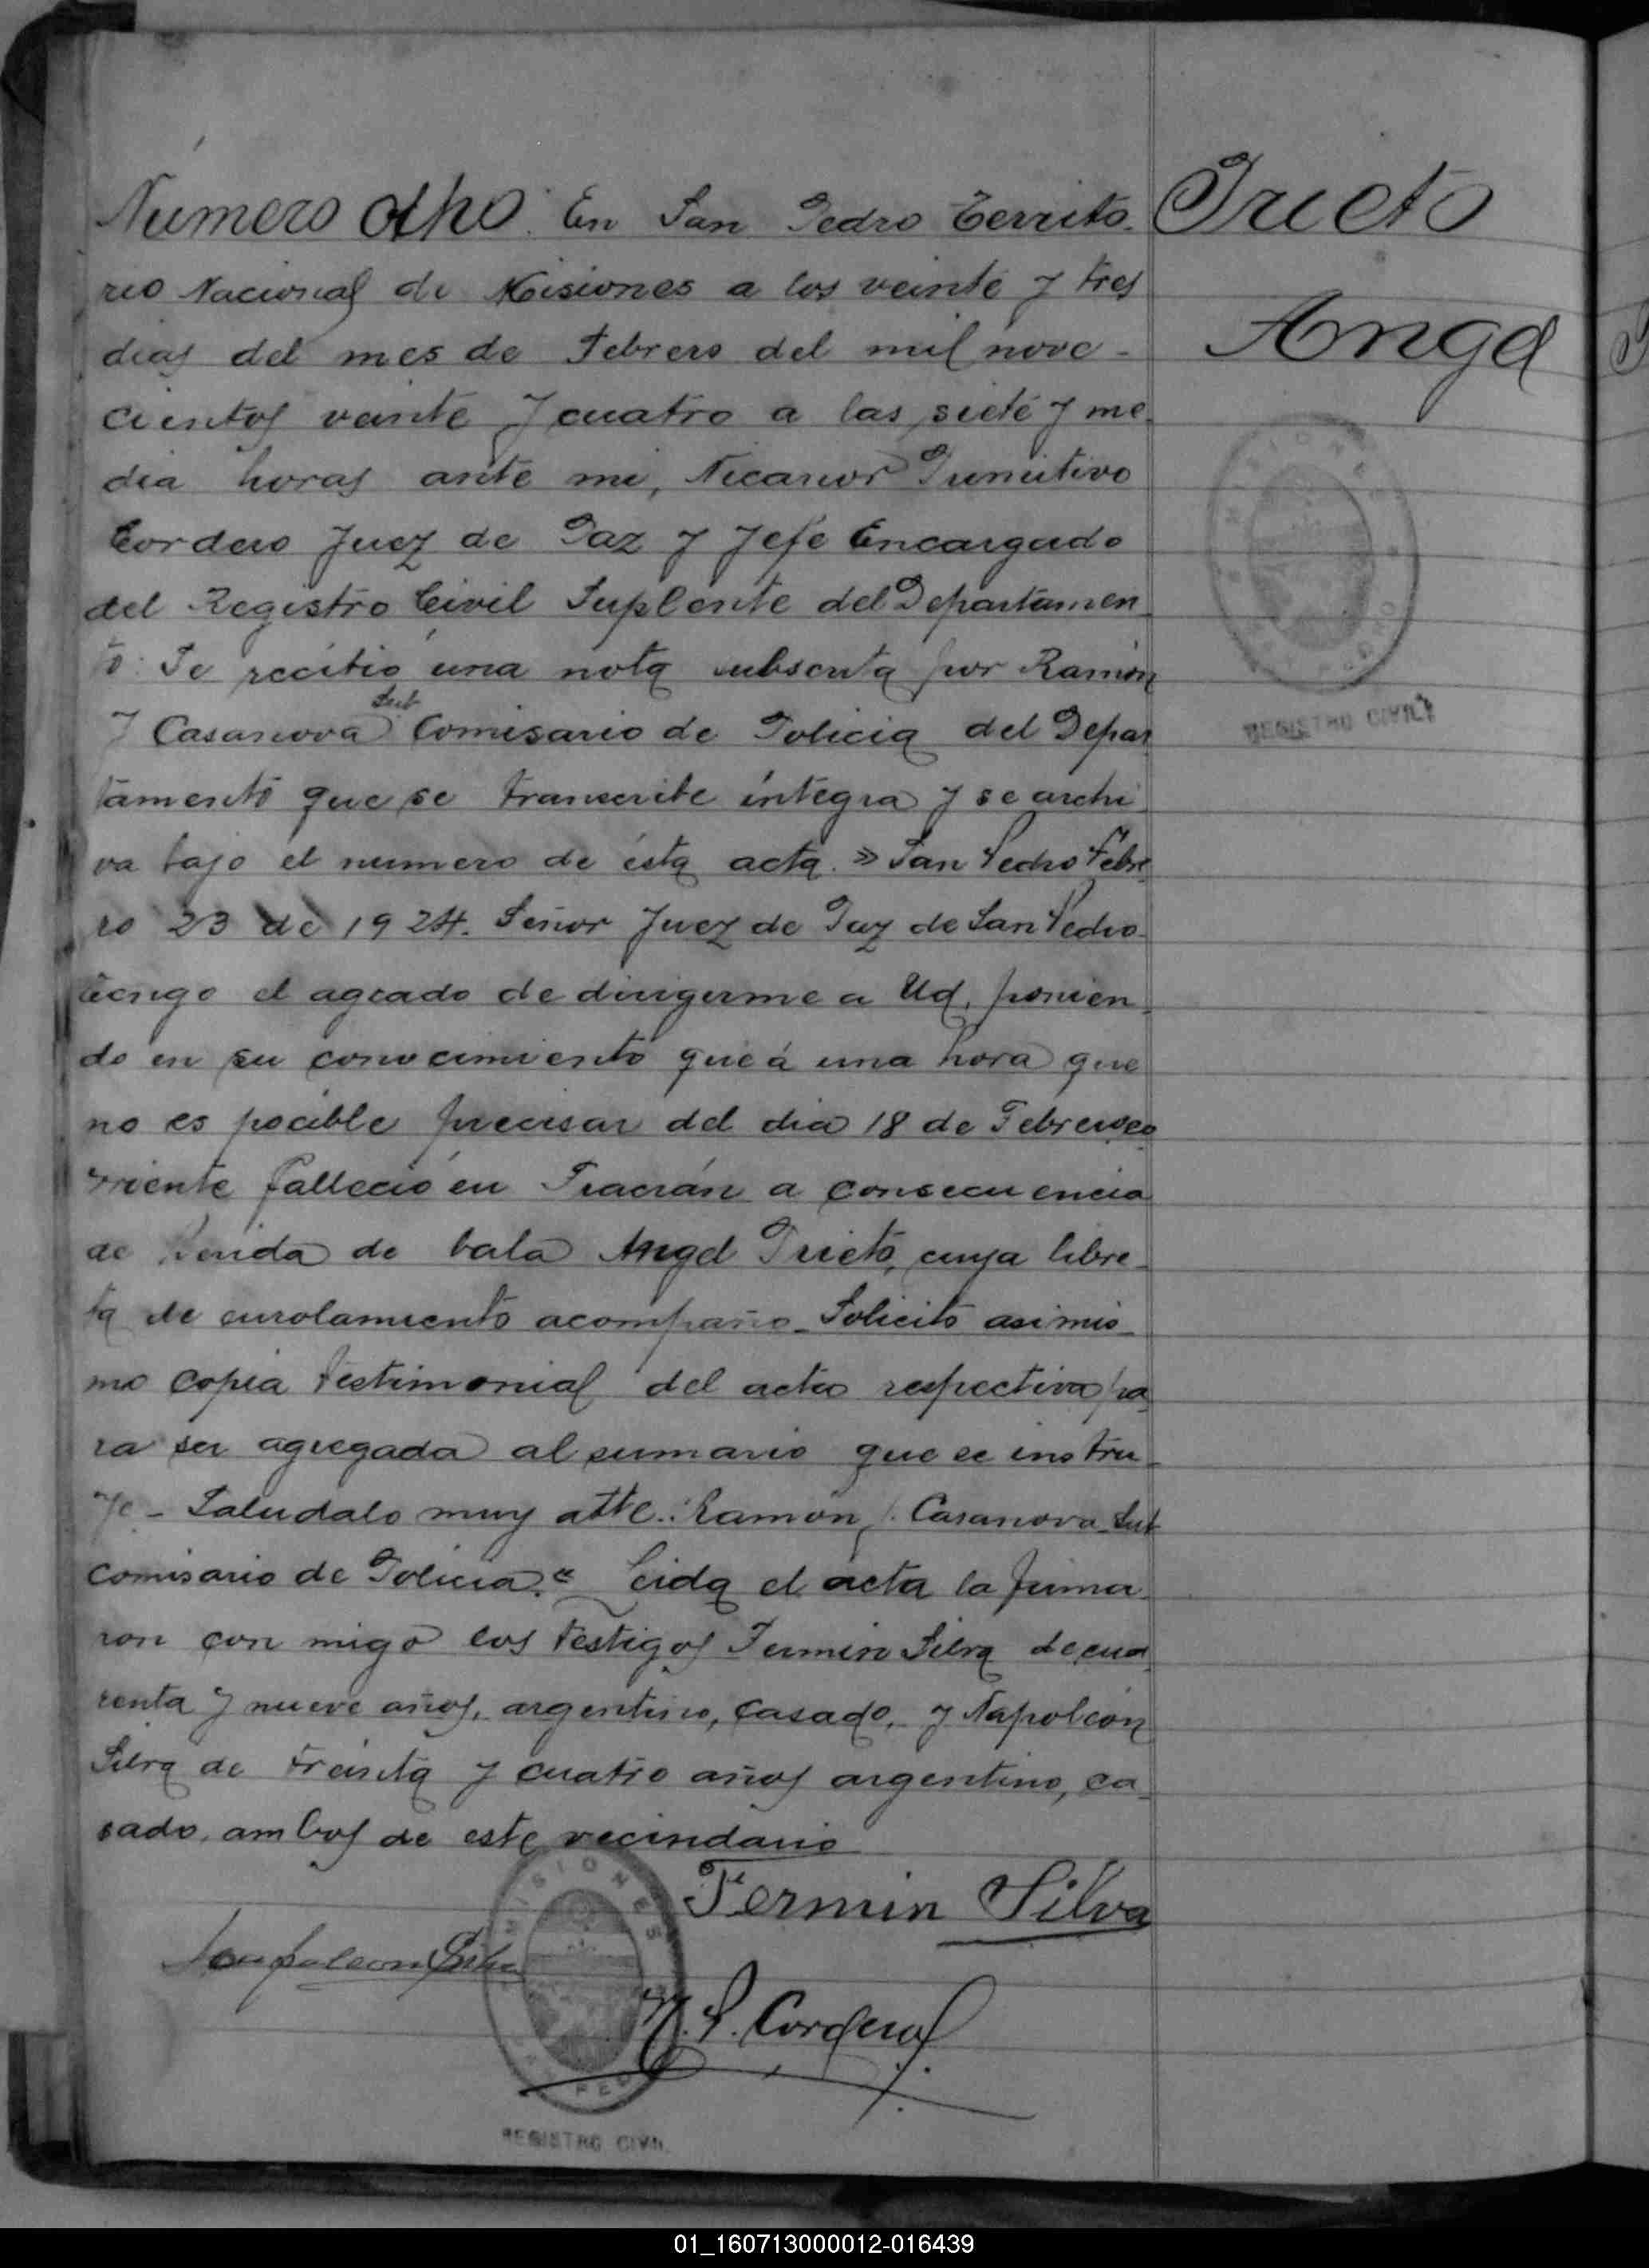 Número ocho. En San Pedro Territo-
rio Nacional de Misiones a los veinte y tres
dias del mes de Febrero del mil nove-
cientos veinte y cuatro a las siete y me-
dia horas ante mi, Nicanor Primitivo
Cordero Juez de Paz y Jefe Encargado
del Registro Civil Suplente del Departamen-
to: Se recibió una nota subscrita por Ramón
J Casanova Sub Comisario de Policia del Depar
tamento que se transcribe íntegra y se archi
va bajo el numero de ésta acta. » San Pedro Febre
ro 23 de 1924. Señor Juez de Paz de San Pedro.
Tengo el agrado de dirigirme a Ud, ponien-
do en su conocimiento que á una hora que
no es pocible precisar del dia 18 de Febrero co
rriente falleció en Piacrán a consecuencia
de herida de bala Angel Prieto, cuya libre-
ta de enrolamiento acompaño. Solicito asimis-
mo copia testimonial del acta respectiva pa
ra ser agregada al sumario que se instru-
ye - Saludalo muy atte.: Ramón J. Casanova Sub
comisario de Policia." Leida el acta la firma-
ron con migo los testigos Fermin Silva de cua-
renta y nueve años, argentino, casado, y Napoleón
Silva de treinta y cuatro años argentino, ca-
sado, ambos de este vecindario
Fermin Silva
Napoleon Silva
N. P. Cordero
Prieto
Angel
MISIONES
REGISTRO CIVIL
MISIONES
REGISTRO CIVIL
01_160713000012-016439